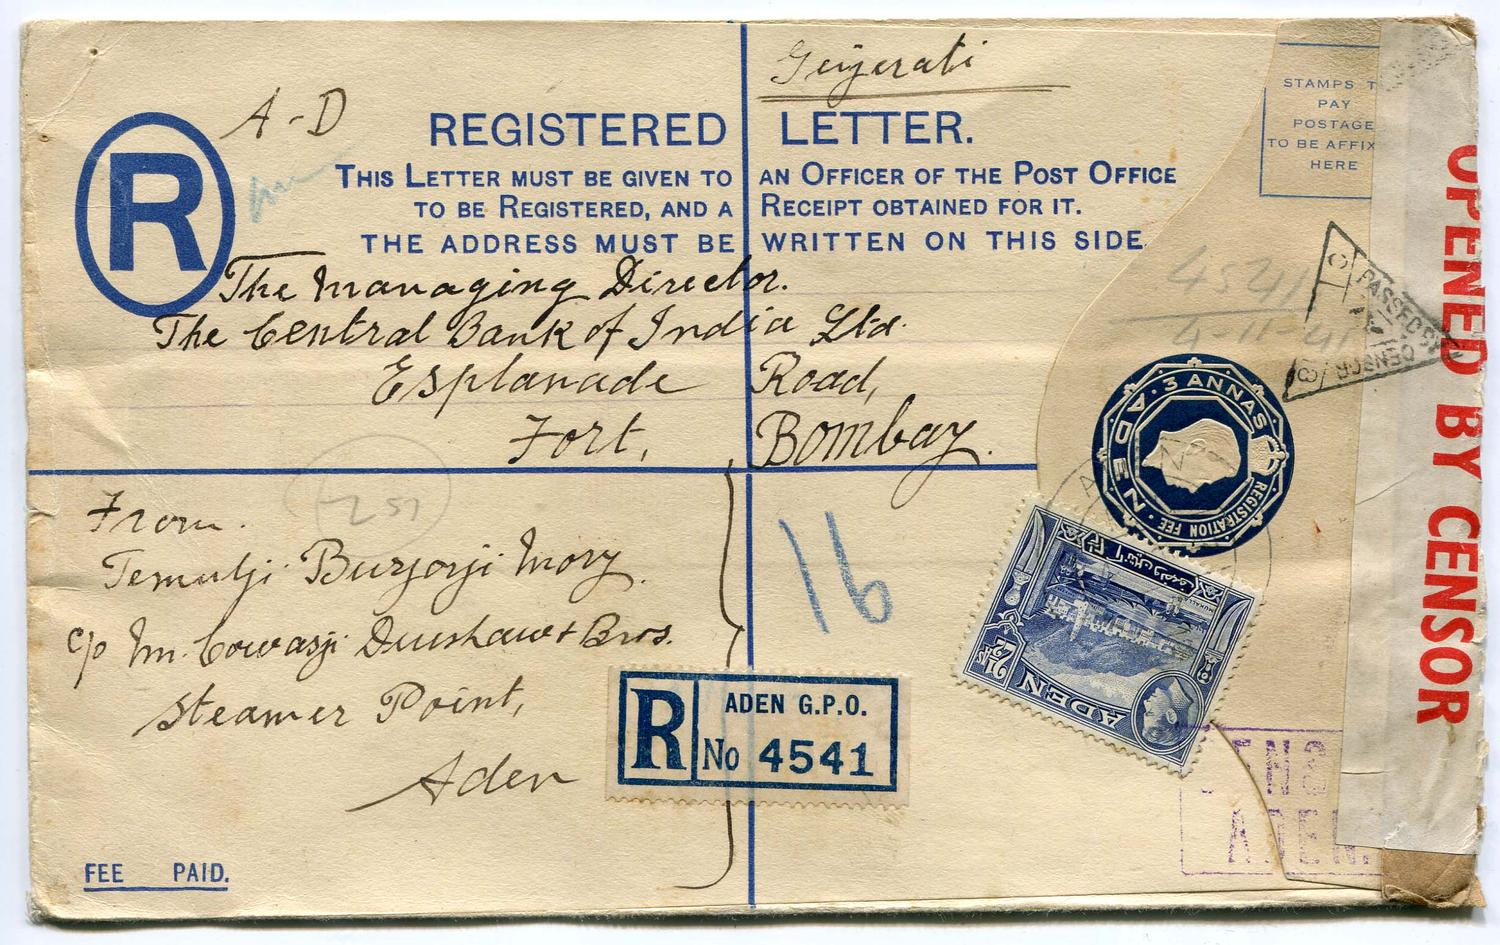 Gujerati
A-D
REGISTERED LETTER.
THIS LETTER MUST BE GIVEN TO AN OFFICER OF THE POST OFFICE
TO BE REGISTERED, AND A RECEIPT OBTAINED FOR IT.
THE ADDRESS MUST BE WRITTEN ON THIS SIDE.
R
STAMPS T
PAY
POSTAGE
TO BE AFFIX
HERE
The Managing Director.
The Central Bank of India Ltd.
Esplanade Road,
Fort, Bombay.
4541
4-11-41
PASSED BY
CENSOR
OPENED BY CENSOR
3 ANNAS
ADEN
REGISTRATION FEE
251
16
From.
Temulji Burjorji Mory.
c/o M. Cowasji Dinshaw & Bros.
Steamer Point,
Aden
MUKALLA
2½ As
ADEN
R ADEN G.P.O.
No 4541
ADEN.
FEE PAID.